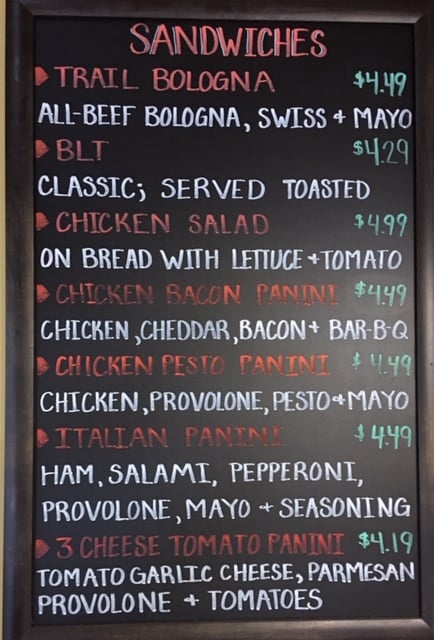 SANDWICHES
TRAIL BOLOGNA $4.49
ALL-BEEF BOLOGNA, SWISS + MAYO
BLT $4.29
CLASSIC; SERVED TOASTED
CHICKEN SALAD $4.99
ON BREAD WITH LETTUCE + TOMATO
CHICKEN BACON PANINI $4.49
CHICKEN, CHEDDAR, BACON + BAR-B-Q
CHICKEN PESTO PANINI $4.49
CHICKEN, PROVOLONE, PESTO + MAYO
ITALIAN PANINI $4.49
HAM, SALAMI, PEPPERONI,
PROVOLONE, MAYO + SEASONING
3 CHEESE TOMATO PANINI $4.19
TOMATO GARLIC CHEESE, PARMESAN
PROVOLONE + TOMATOES